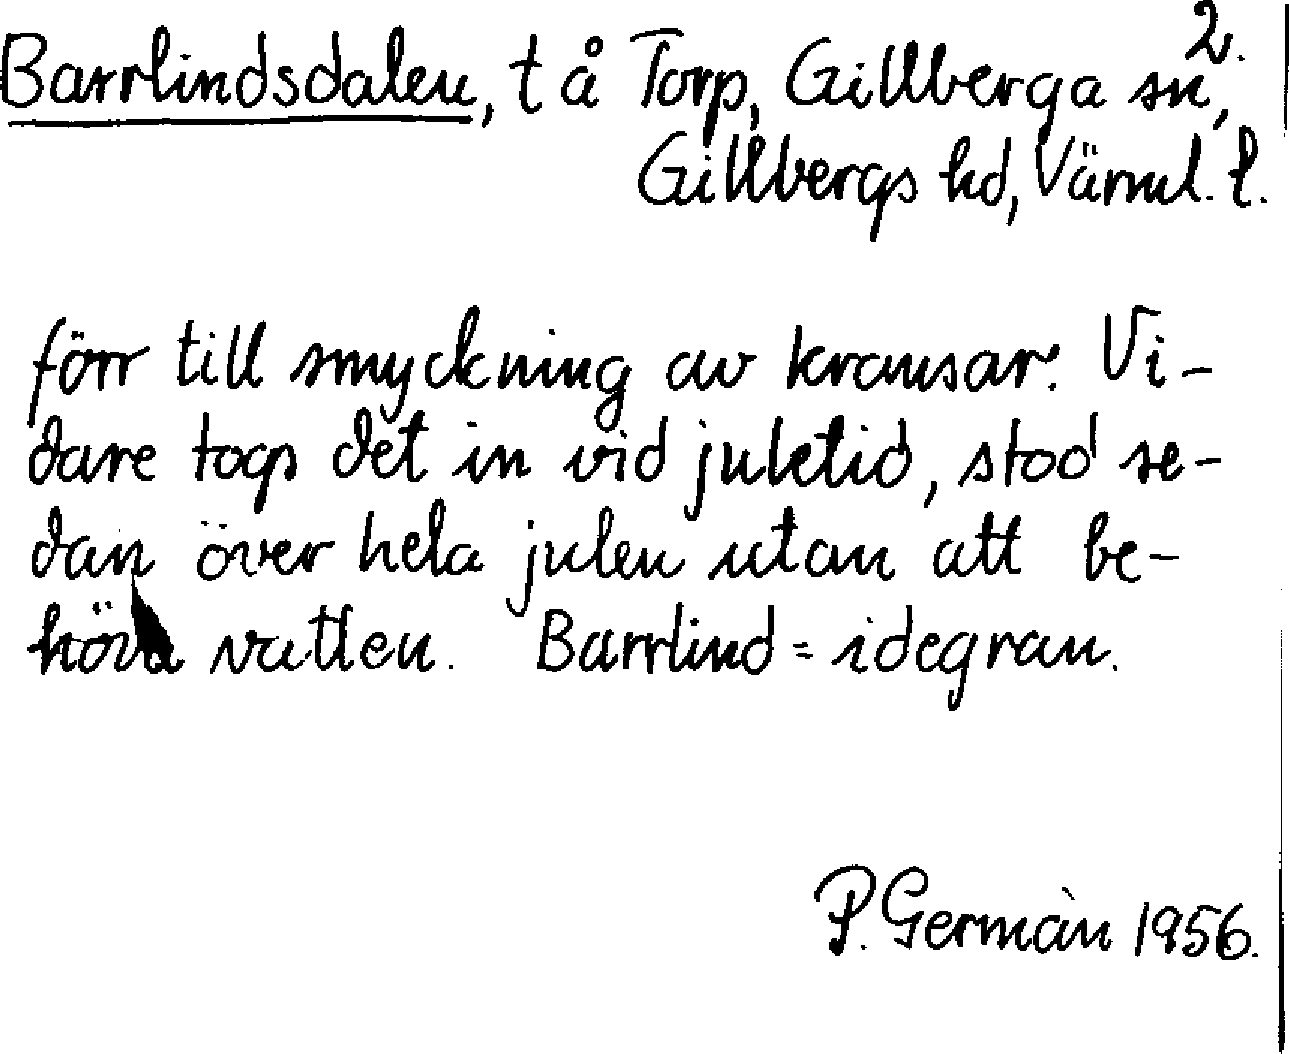 2.
Barrlindsdalen, t å Torp, Gillberga sn,
Gillbergs hd, Värml. l.
förr till smyckning av kransar. Vi-
dare togs det in vid juletid, stod se-
dan över hela julen utan att be-
höva vatten. Barrlind = idegran.
P. Germàn 1956.